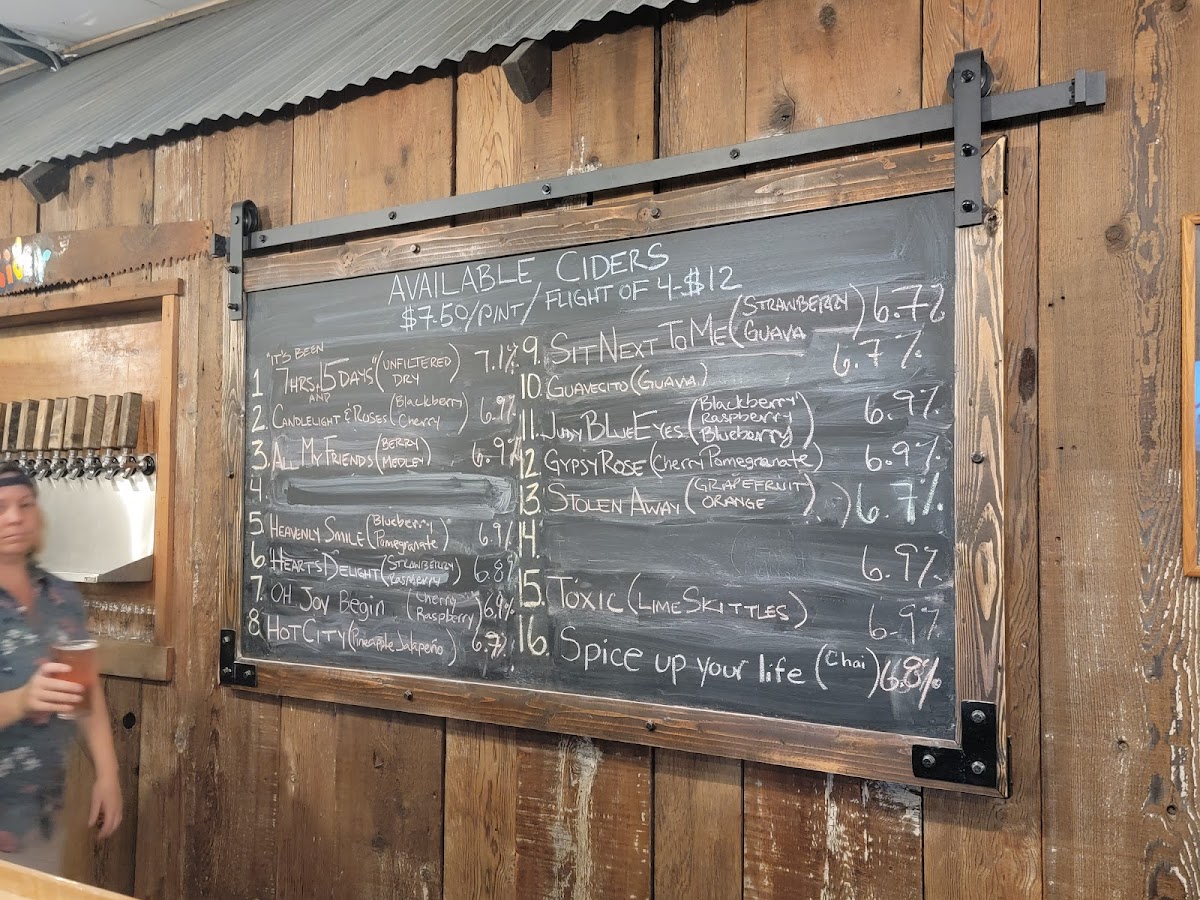 AVAILABLE CIDERS
$7.50/PINT/FLIGHT OF 4-$12
1. "IT'S BEEN 7HRS. AND 15 DAYS" (UNFILTERED DRY) 7.1%
2. CANDLELIGHT & ROSES (Blackberry Cherry) 6.9%
3. ALL MY FRIENDS (BERRY MEDLEY) 6.9%
4.
5. HEAVENLY SMILE (Blueberry Pomegranate) 6.9%
6. HEART'S DELIGHT (STRAWBERRY Raspberry) 6.8%
7. OH Joy Begin (Cherry Raspberry) 6.9%
8. HOT CITY (Pineapple Jalapeño)
9. SIT NEXT TO ME (STRAWBERRY GUAVA) 6.7%
10. GUAVECITO (GUAVA) 6.7%
11. JUDY BLUE EYES (Blackberry Raspberry Blueberry) 6.9%
12. GYPSY ROSE (Cherry Pomegranate) 6.9%
13. STOLEN AWAY (GRAPEFRUIT ORANGE) 6.7%
14. 6.9%
15. TOXIC (LIME SKITTLES) 6.9%
16. Spice up your life (Chai) 6.8%